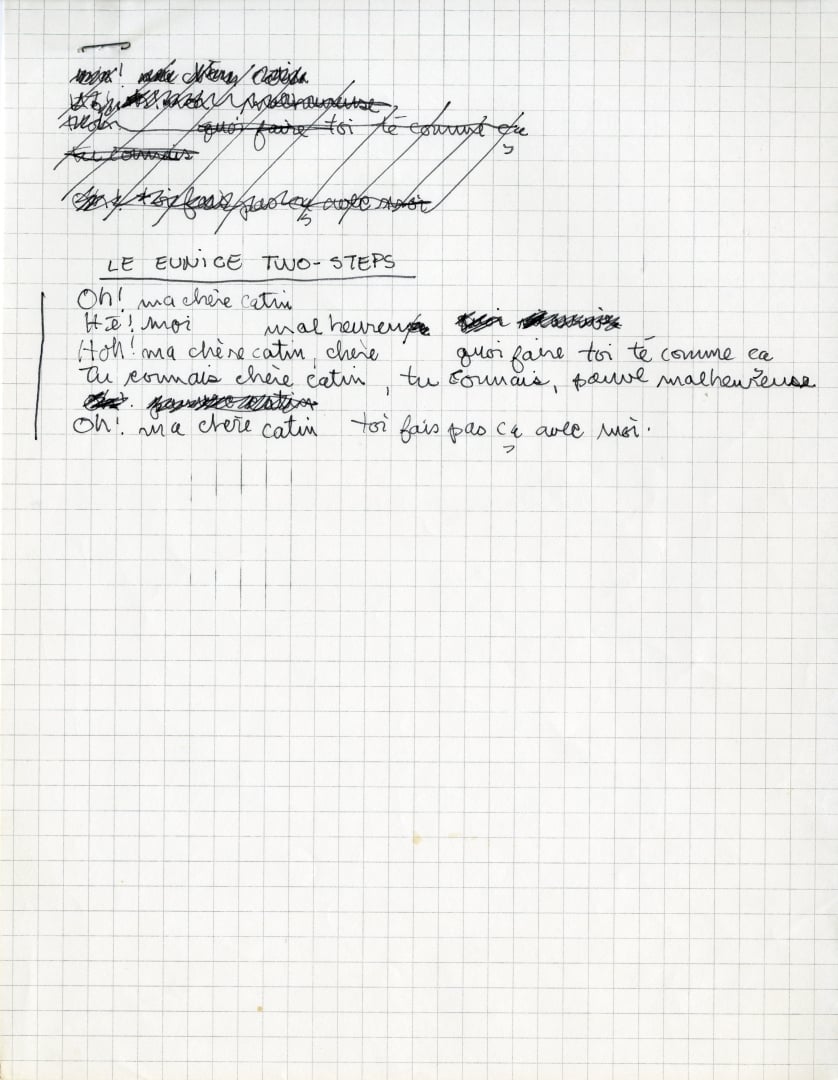 malheureuse
quoi faire toi té comme ça
tu connais
toi fais pas ça avec moi
LE EUNICE TWO-STEPS
Oh! ma chère catin
Hé! moi malheureuse
Hoh! ma chère catin, chère quoi faire toi té comme ça
Tu connais chère catin, tu connais, pauve malheureuse
Oh! ma chère catin toi fais pas ça avec moi.